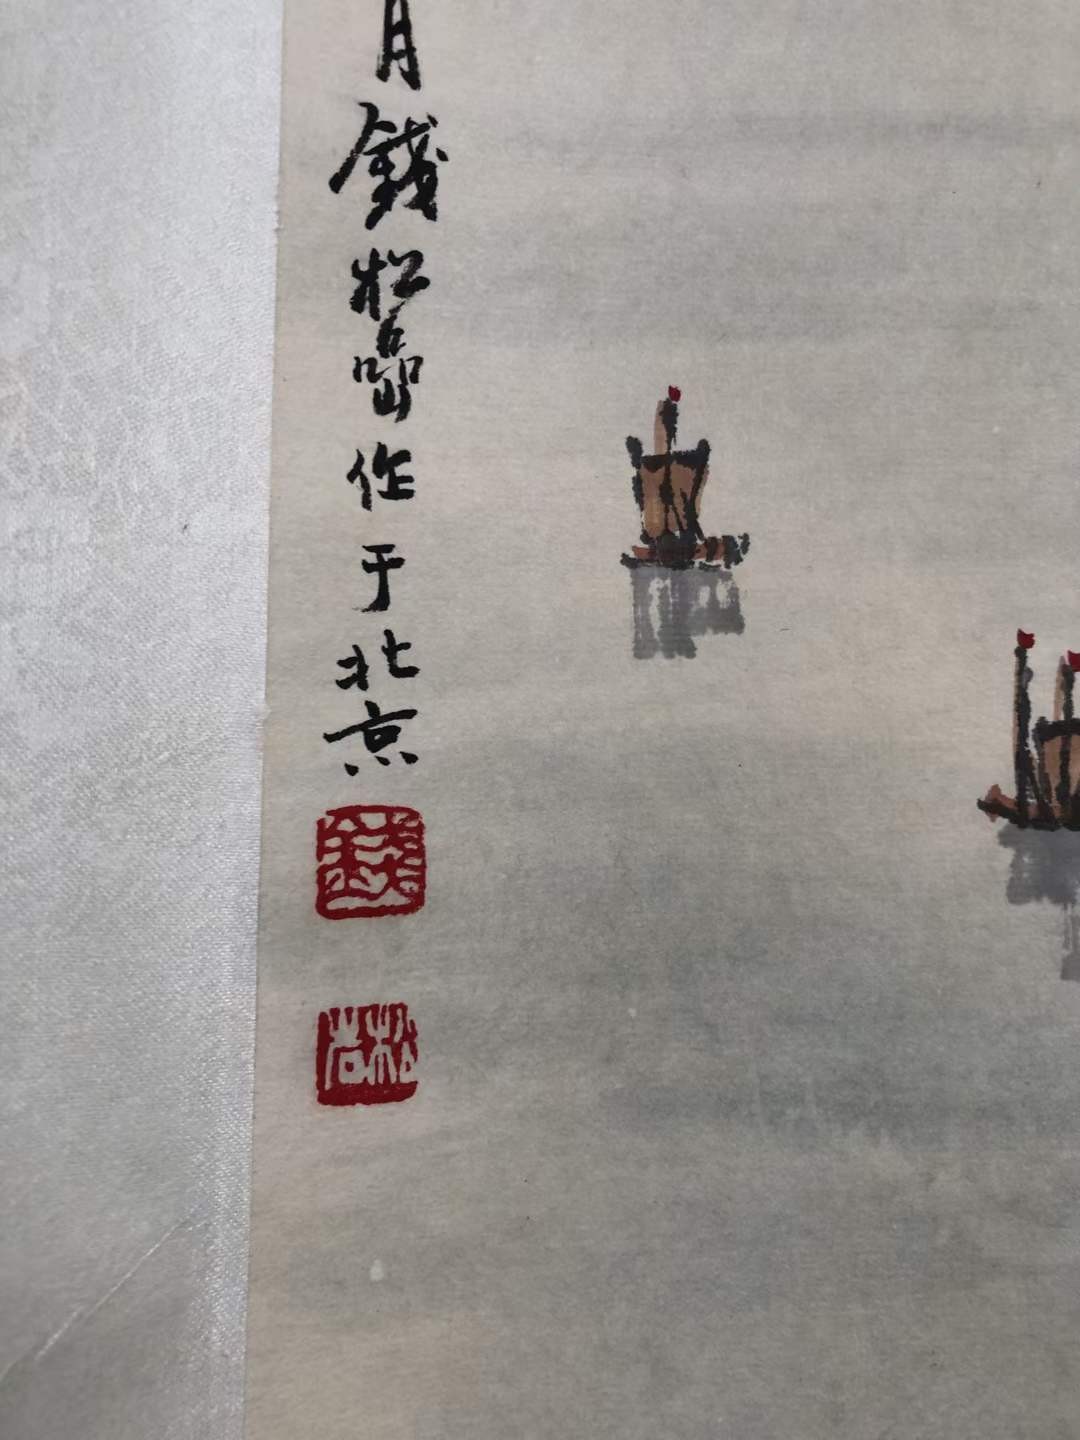 月錢松嵒作于北京
錢
松嵒